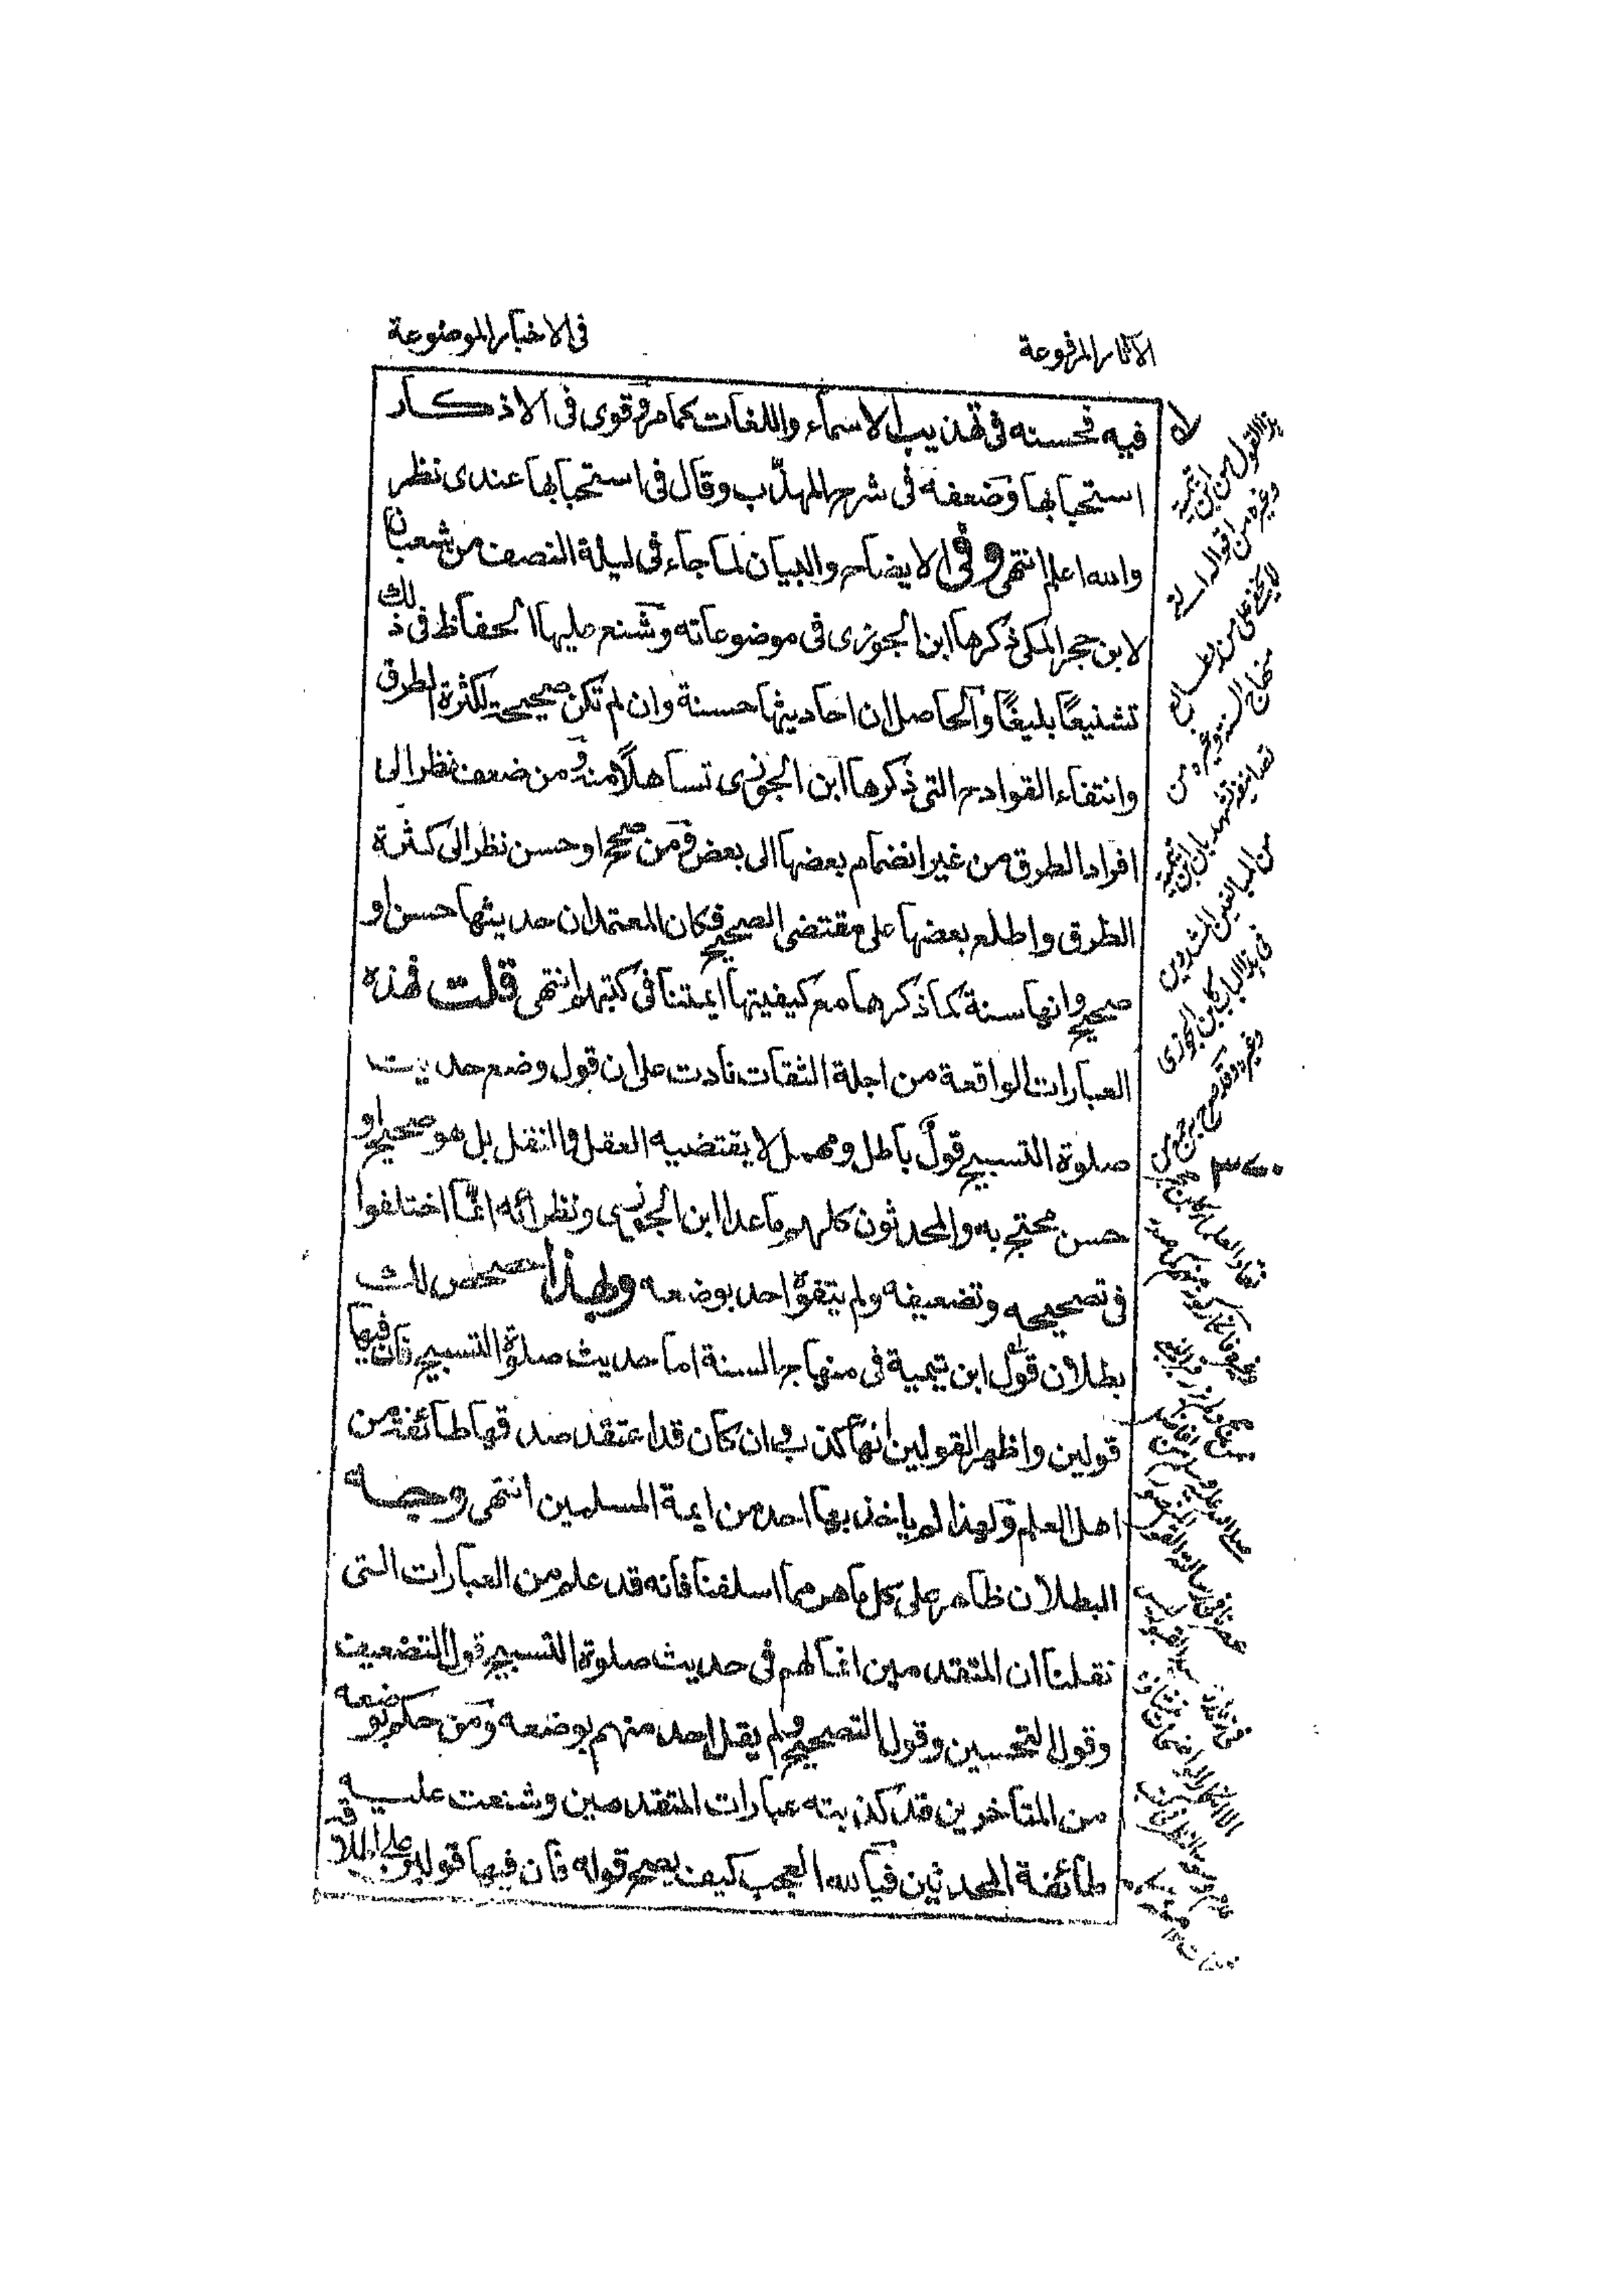 الآثار المرفوعة
فى الاخبار الموضوعة
فيه فحسنه فى تهذيب الاسماء واللغات كما مر وقوى فى الاذكار
استحبابها وضعفه فى شرح المهذّب وقال فى استحبابها عندى نظر
والله اعلم انتهى وفى الايضاح والبيان لما جاء فى ليلة النصف من شعبان
لابن حجر المكى ذكرها ابن الجوزى فى موضوعاته وشنع عليها الحفاظ فى ذلك
تشنيعًا بليغًا والحاصل ان احاديثها حسنة وان لم تكن صحيحة لكثرة الطرق
وانتفاء القوادح التى ذكرها ابن الجوزى تساهلًا منه ومن ضعف نظر الى
افراد الطرق من غير انضمام بعضها الى بعض ومن صحح او حسن نظر الى كثرة
الطرق واطلع بعضها على مقتضى الصحيح فكان المعتمد ان حديثها حسن او
صحيح وانها سنة كما ذكرها مع كيفيتها ايمتنا فى كتبهم انتهى قلت فهذه
العبارات الواقعة من اجلة الثقات نادت على ان قول وضع حديث
صلوة التسبيح قولٌ باطل ومهمل لا يقتضيه العقل والنقل بل هو صحيح او
حسن محتج به والمحدثون كلهم ما عدا ابن الجوزى ونظرائه انما اختلفوا
فى تصحيحه وتضعيفه ولم يتفوّه احد بوضعه وبهذا حصحص لك
بطلان قول ابن تيمية فى منهاج السنة اما حديث صلوة التسبيح فان فيها
قولين واظهر القولين انها كذب وان كان قد اعتقد صدقها طائفة من
اهل العلم ولهذا لم ياخذ بها احد من ايمة المسلمين انتهى وجه
البطلان ظاهر على كل ماهر مما اسلفنا فانه قد علم من العبارات التى
نقلنا ان المتقدمين انما لهم فى حديث صلوة التسبيح قول التضعيف
وقول التحسين وقول التصحيح ولم يقل احد منهم بوضعه ومن حكم بوضعه
من المتاخرين فقد كذبته عبارات المتقدمين وشنعت عليه
طائفة المحدثين فيا لله العجب كيف يصح قوله فان فيها قولين على اطلاقه
هذا القول من ابن تيمية
وغيره من اقواله
لا يخفى على من طالع
منهاج السنة وغيره من
تصانيفه تشهد بان ابن تيمية
من المبالغين المشددين
فى هذا الباب كابن الجوزى
وغيره وقد صرح به جمع من